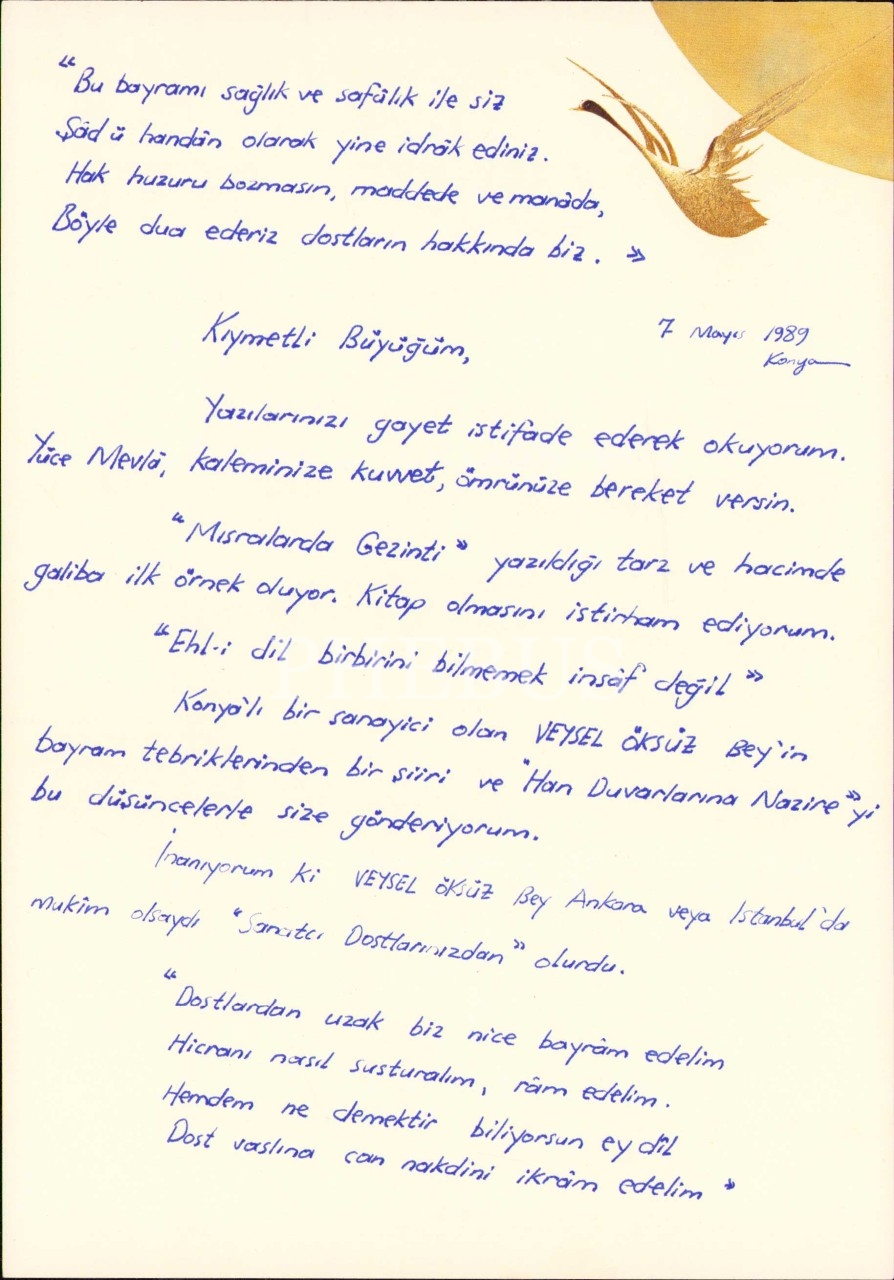 "Bu bayramı sağlık ve safâlık ile siz
Şâd ü handân olarak yine idrâk ediniz.
Hak huzuru bozmasın, maddede ve manâda,
Böyle dua ederiz dostların hakkında biz. »
7 Mayıs 1989
Konya
Kıymetli Büyüğüm,
Yazılarınızı gayet istifade ederek okuyorum.
Yüce Mevlâ, kaleminize kuvvet, ömrünüze bereket versin.
"Mısralarda Gezinti» yazıldığı tarz ve hacimde
galiba ilk örnek oluyor. Kitap olmasını istirham ediyorum.
"Ehl-i dil birbirini bilmemek insâf değil »
Konya'lı bir sanayici olan VEYSEL ÖKSÜZ Bey'in
bayram tebriklerinden bir şiiri ve "Han Duvarlarına Nazire»yi
bu düşüncelerle size gönderiyorum.
İnanıyorum ki VEYSEL ÖKSÜZ Bey Ankara veya Istanbul'da
mukîm olsaydı "Sanatcı Dostlarınızdan» olurdu.
"Dostlardan uzak biz nice bayrâm edelim
Hicranı nasıl susturalım, râm edelim.
Hemdem ne demektir biliyorsun ey dîl
Dost vaslına can nakdini ikrâm edelim »
PHEBUS